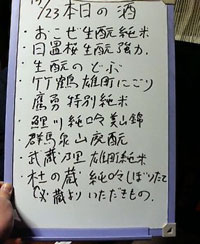 12/23本日の酒
・おこぜ生酛純米
・日置桜生酛強力
・生酛のどぶ
・竹鶴雄町にごり
・鷹勇特別純米
・鯉川純吟美山錦
・群馬泉山廃酛
・武蔵乃里雄町純米
・杜の蔵純吟しぼりたて
蔵よりいただきもの。